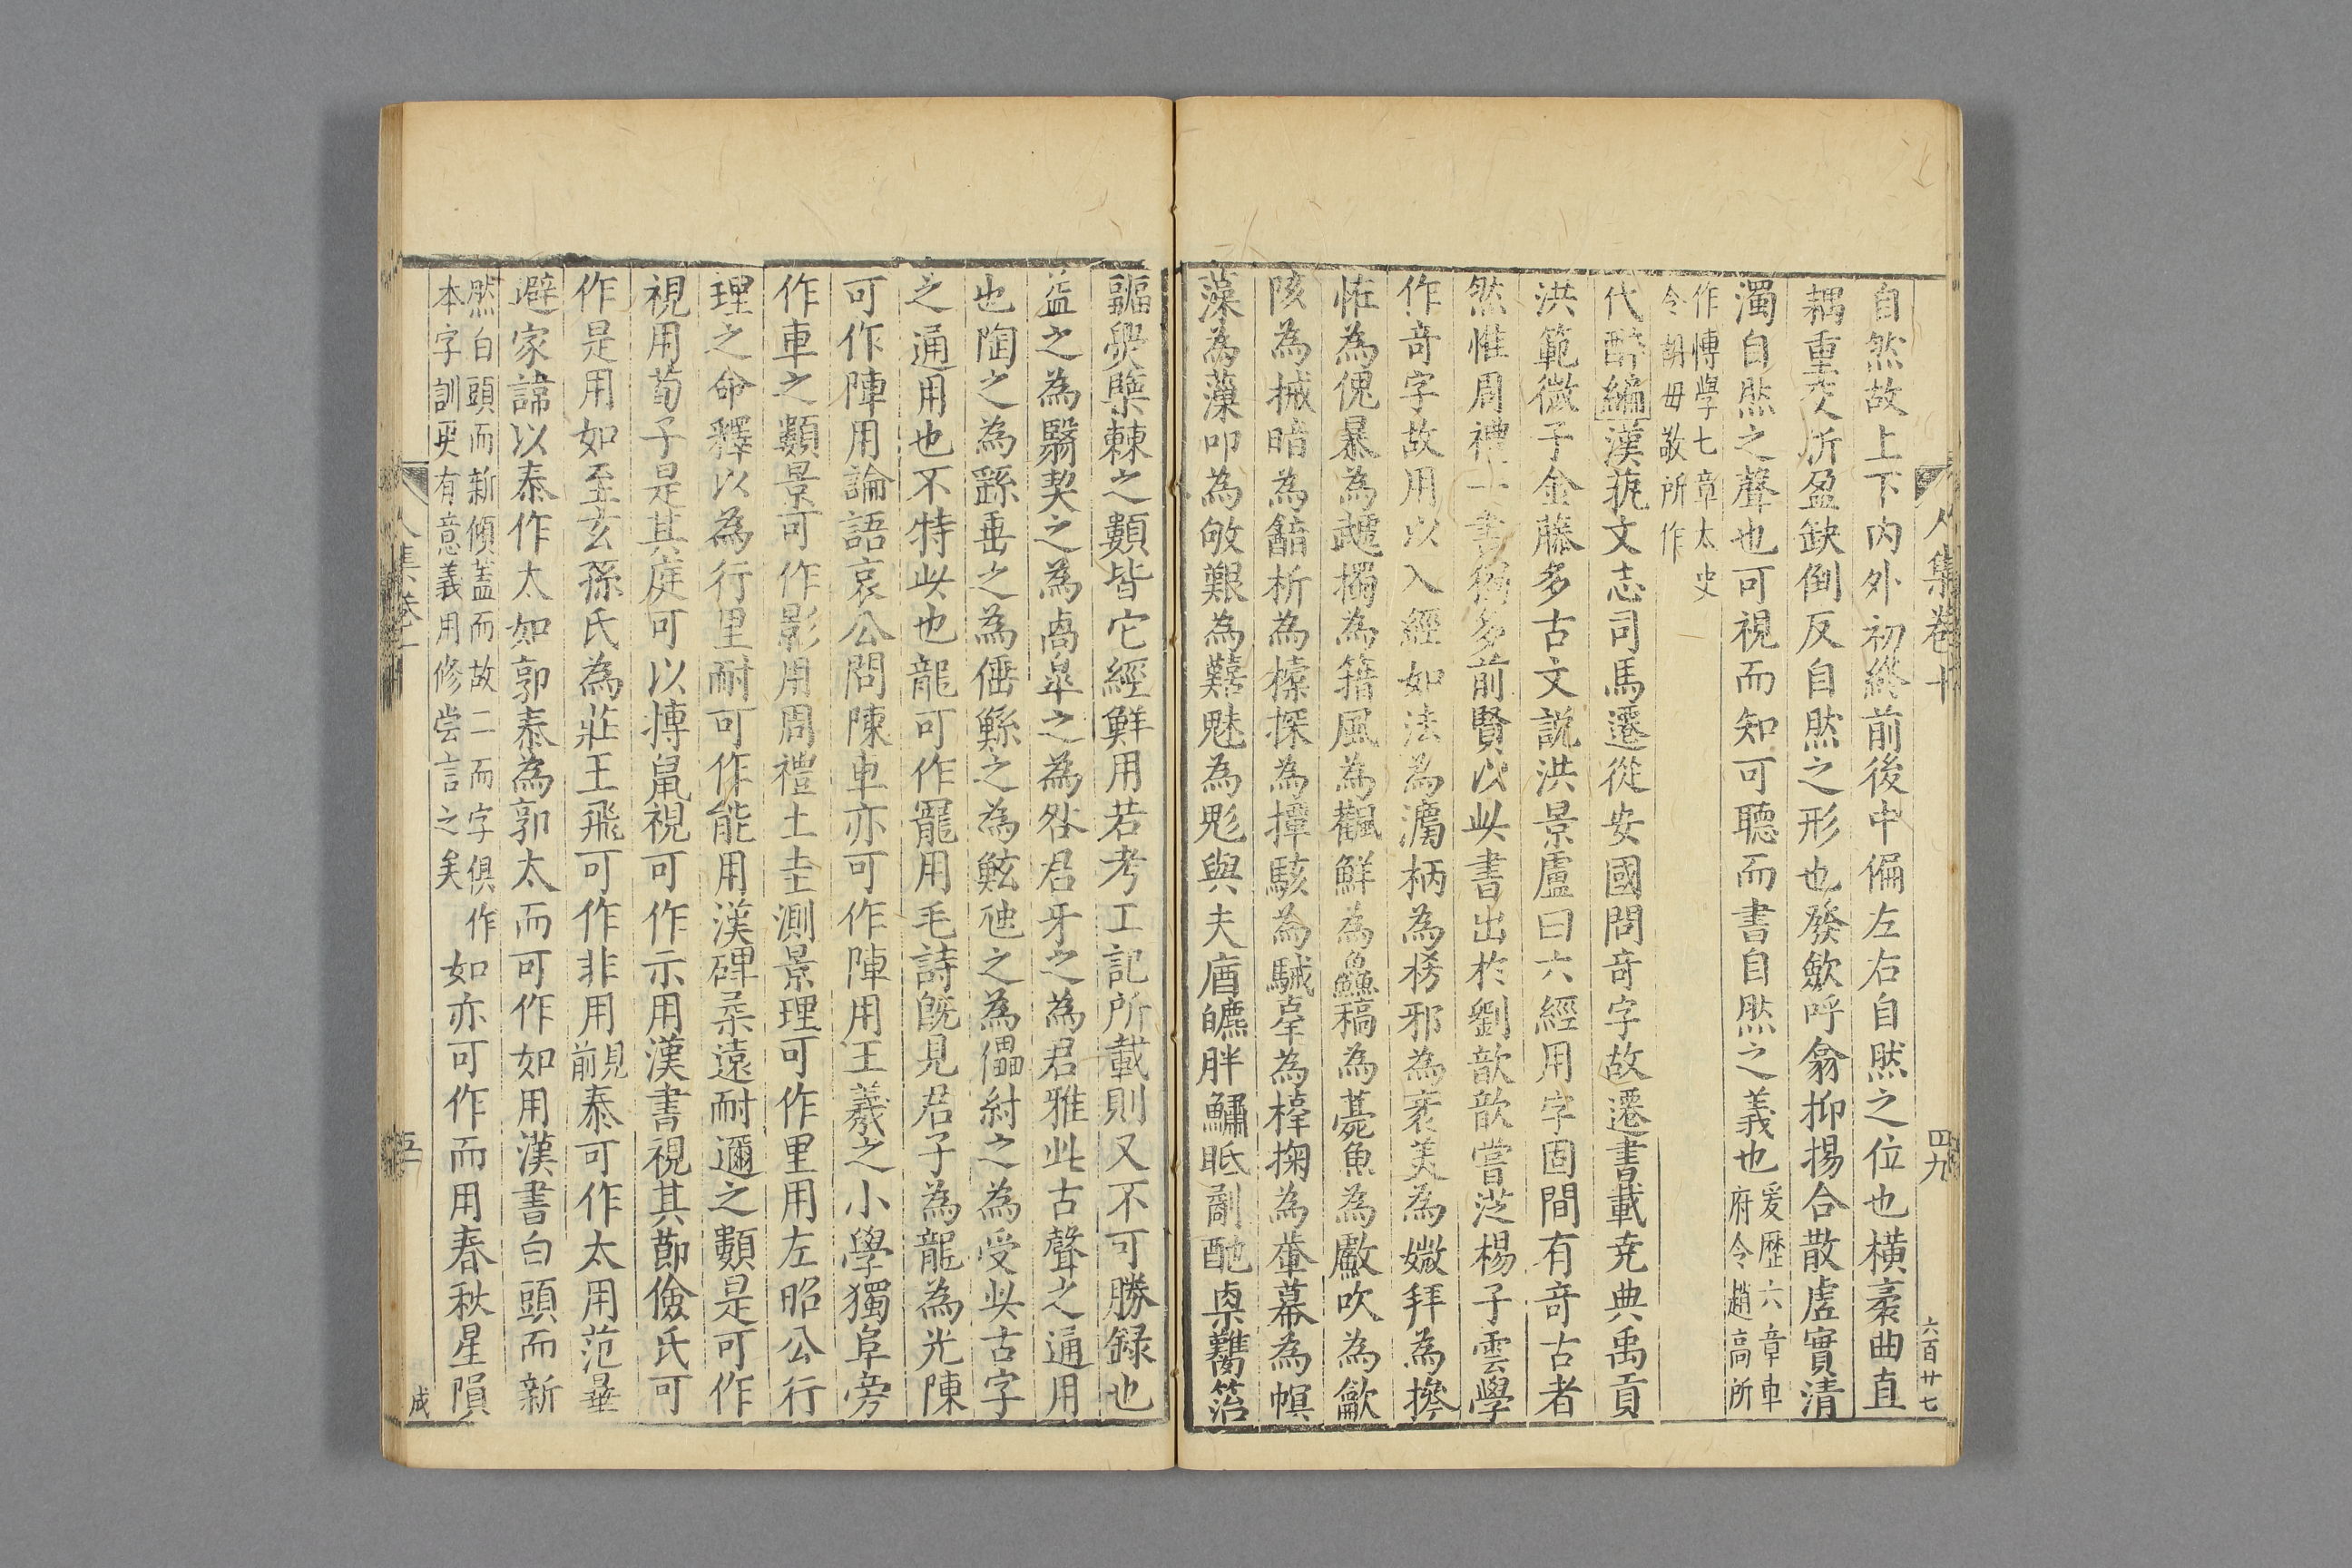 人集卷十
四九
六百廿七
自然故上下內外初終前後中偏左右自然之位也橫袤曲直
耦重交所盈缺倒反自然之形也發歛呼翕抑揚合散虛實清
濁自然之聲也可視而知可聽而書自然之義也爰歷六章車府令趙高所
作博學七章太史令胡毋敬所作
代醉編漢藝文志司馬遷從安國問奇字故遷書載堯典禹貢
洪範微子金藤多古文說洪景盧曰六經用字固間有奇古者
然惟周禮一書獨多前賢以此書出於劉歆歆嘗從楊子雲學
作奇字故用以入經如法為灋柄為枋邪為衺美為媺拜為㩒
恠為傀暴為虣擉為籍風為飌鮮為鱻稿為薧魚為䱷吹為龡
陔為裓暗為韽析為㯕探為撢駭為駴辜為橭掬為蓳幕為幎
藻為薻叩為敂艱為囏魅為鬽與夫庮皫胖鱐眡劀酏㮚𪇱箈
疈㸑槷棘之類皆它經鮮用若考工記所載則又不可勝録也
益之為翳契之為卨皋之為咎君牙之為君雅此古聲之通用
也陶之為繇垂之為倕鯀之為鮌虺之為儡紂之為受此古字
之通用也不特此也龍可作寵用毛詩旣見君子為龍為光陳
可作陣用論語哀公問陳車亦可作陣用王羲之小學獨阜旁
作車之類景可作影用周禮土圭測景理可作里用左昭公行
理之命釋以為行里耐可作能用漢碑柔遠耐邇之類是可作
視用荀子是其庭可以博鼠視可作示用漢書視其節儉氏可
作是用如至玄孫氏為莊王飛可作非用見前泰可作太用范曅
避家諱以泰作太如郭泰為郭太而可作如用漢書白頭而新
然白頭而新傾蓋而故二而字俱作本字訓更有意義用修嘗言之矣如亦可作而用春秋星隕
人集卷十
五一
成